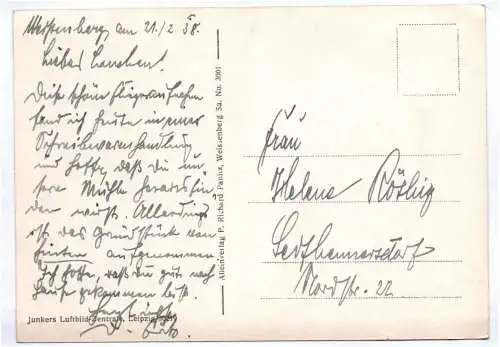 Weißenberg am 21./2 38.
Liebes Lenchen!
Diese schöne Fliegeraufnahme
fand ich heute in einer
Schreibwarenhandlung
und hoffe, daß du un-
sere Mühle herausfin-
den wirst. Allerdings
ist das Grundstück von
hinten aufgenommen
Ich hoffe, daß du gut nach
Hause gekommen bist.
Herzlichst
D.
Junkers Luftbild-Zentrale, Leipzig
Alleinverlag P. Richard Panitz, Weissenberg Sa. No. 3001
Frau
Helene Rößig
Seifhennersdorf
Nordstr. 22